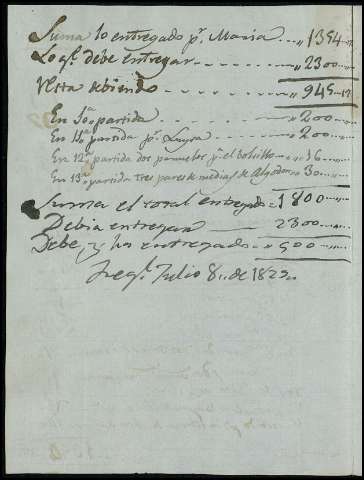 Suma lo entregado pr. Maria ... 1354 "12
Lo qe. debe entregar ... " 2300 ...
Resta debiendo ... " 945 "12
En 10a. partida ... " 200 ...
En 11a. partida pr. Luysa ... " 200 ...
En 12a. partida dos pañuelos pa. el bolsillo ... " 16 ...
En 13a. partida tres pares de medias de Algodon " 30 ...
Suma el total entregado " 1800 ...
Debia entregar — 2300 ...
Debe, y ha entregado " 500 ...
Julio 8,, de 1822